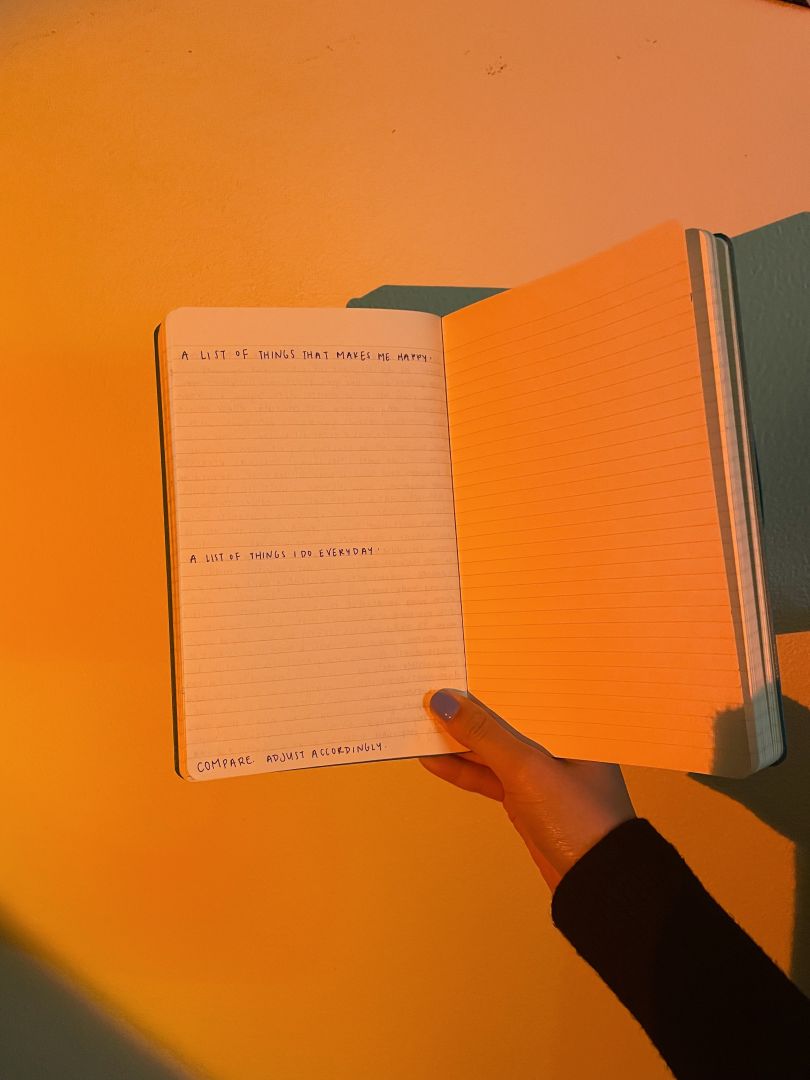 A LIST OF THINGS THAT MAKES ME HAPPY.
A LIST OF THINGS I DO EVERYDAY.
COMPARE. ADJUST ACCORDINGLY.